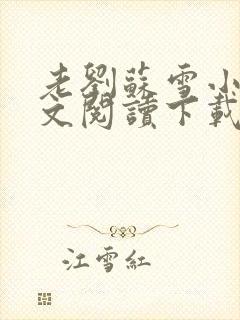 老劉蘇雪小
文閱讀下載
江雪紅